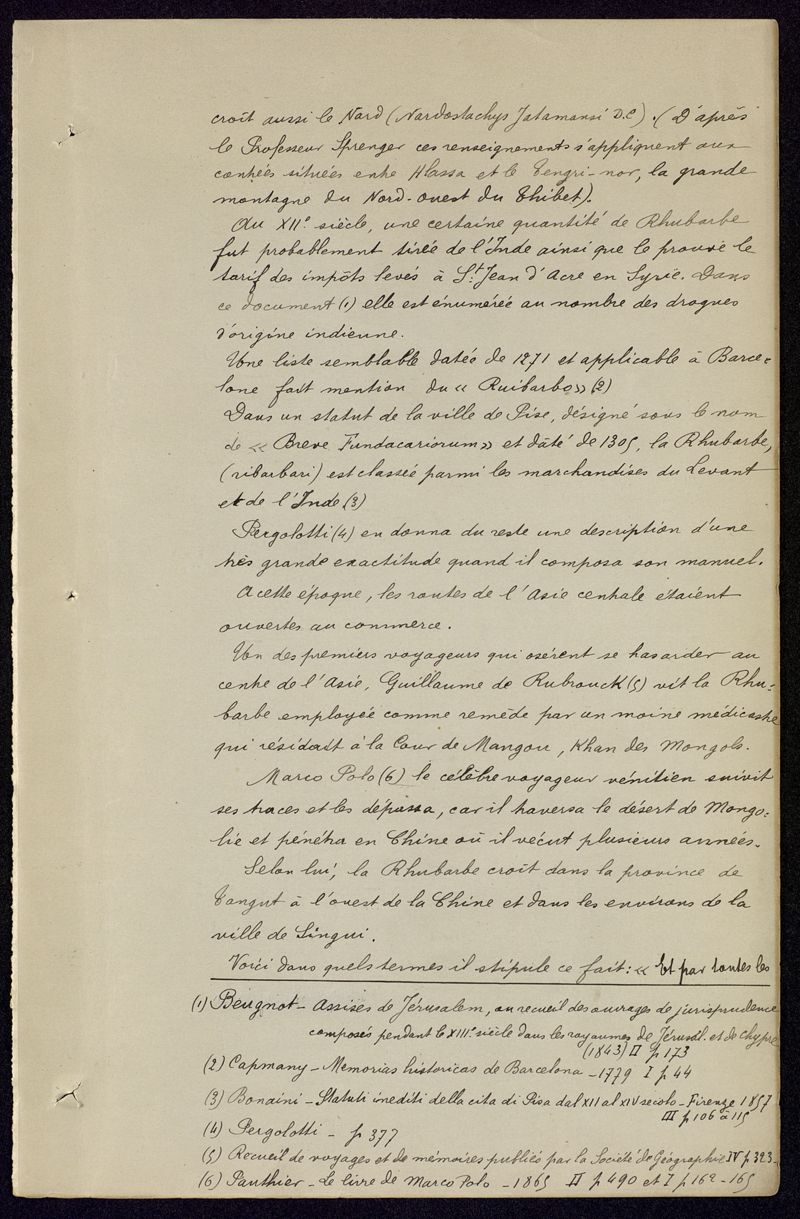 croît aussi le Nard (Nardostachys Jatamansi D.C) . (D'après
le Professeur Sprenger ces renseignements s'appliquent aux
contrées situées entre Hlassa et le Tengri-nor, la grande
montagne du Nord-ouest du Thibet).
Au XIIe siècle, une certaine quantité de Rhubarbe
fut probablement tirée de l'Inde ainsi que le prouve le
tarif des impôts levés à St Jean d'Acre en Syrie. Dans
ce document (1) elle est énumérée au nombre des drogues
d'origine indienne.
Une liste semblable datée de 1271 et applicable à Barce-
lone fait mention du « Ruibarbo » (2)
Dans un statut de la ville de Pise, désigné sous le nom
de « Breve Fundacariorum » et daté de 1305, la Rhubarbe,
(ribarbari) est classée parmi les marchandises du Levant
et de l'Inde (3)
Pergolotti (4) en donna du reste une description d'une
très grande exactitude quand il composa son manuel.
A cette époque, les routes de l'Asie centrale étaient
ouvertes au commerce.
Un des premiers voyageurs qui osèrent se hasarder au
centre de l'Asie, Guillaume de Rubrouck (5) vit la Rhu-
barbe employée comme remède par un moine médicastre
qui résidait à la Cour de Mangou, Khan des Mongols.
Marco Polo (6) le célèbre voyageur vénitien suivit
ses traces et les dépassa, car il traversa le désert de Mongo-
lie et pénétra en Chine où il vécut plusieurs années.
Selon lui, la Rhubarbe croît dans la province de
Tangut à l'ouest de la Chine et dans les environs de la
ville de Singui.
Voici dans quels termes il stipule ce fait : « Et par toutes les
(1) Beugnot - Assises de Jérusalem, ou recueil des ouvrages de jurisprudence
composés pendant le XIIIe siècle dans les royaumes de Jérusal. et de Chypre
(1843) II p 173
(2) Capmany - Memorias historicas de Barcelona - 1779 I p 44
(3) Bonaini - Statuti inediti della cita di Pisa dal XII al XIV secolo - Firenze 1857
III p 106 à 115
(4) Pergolotti - p 377
(5) Recueil de voyages et de mémoires publiés par la Société de Géographie IV p 323 -
(6) Pauthier - Le livre de Marco Polo - 1865 II p 490 et I p 162 - 165